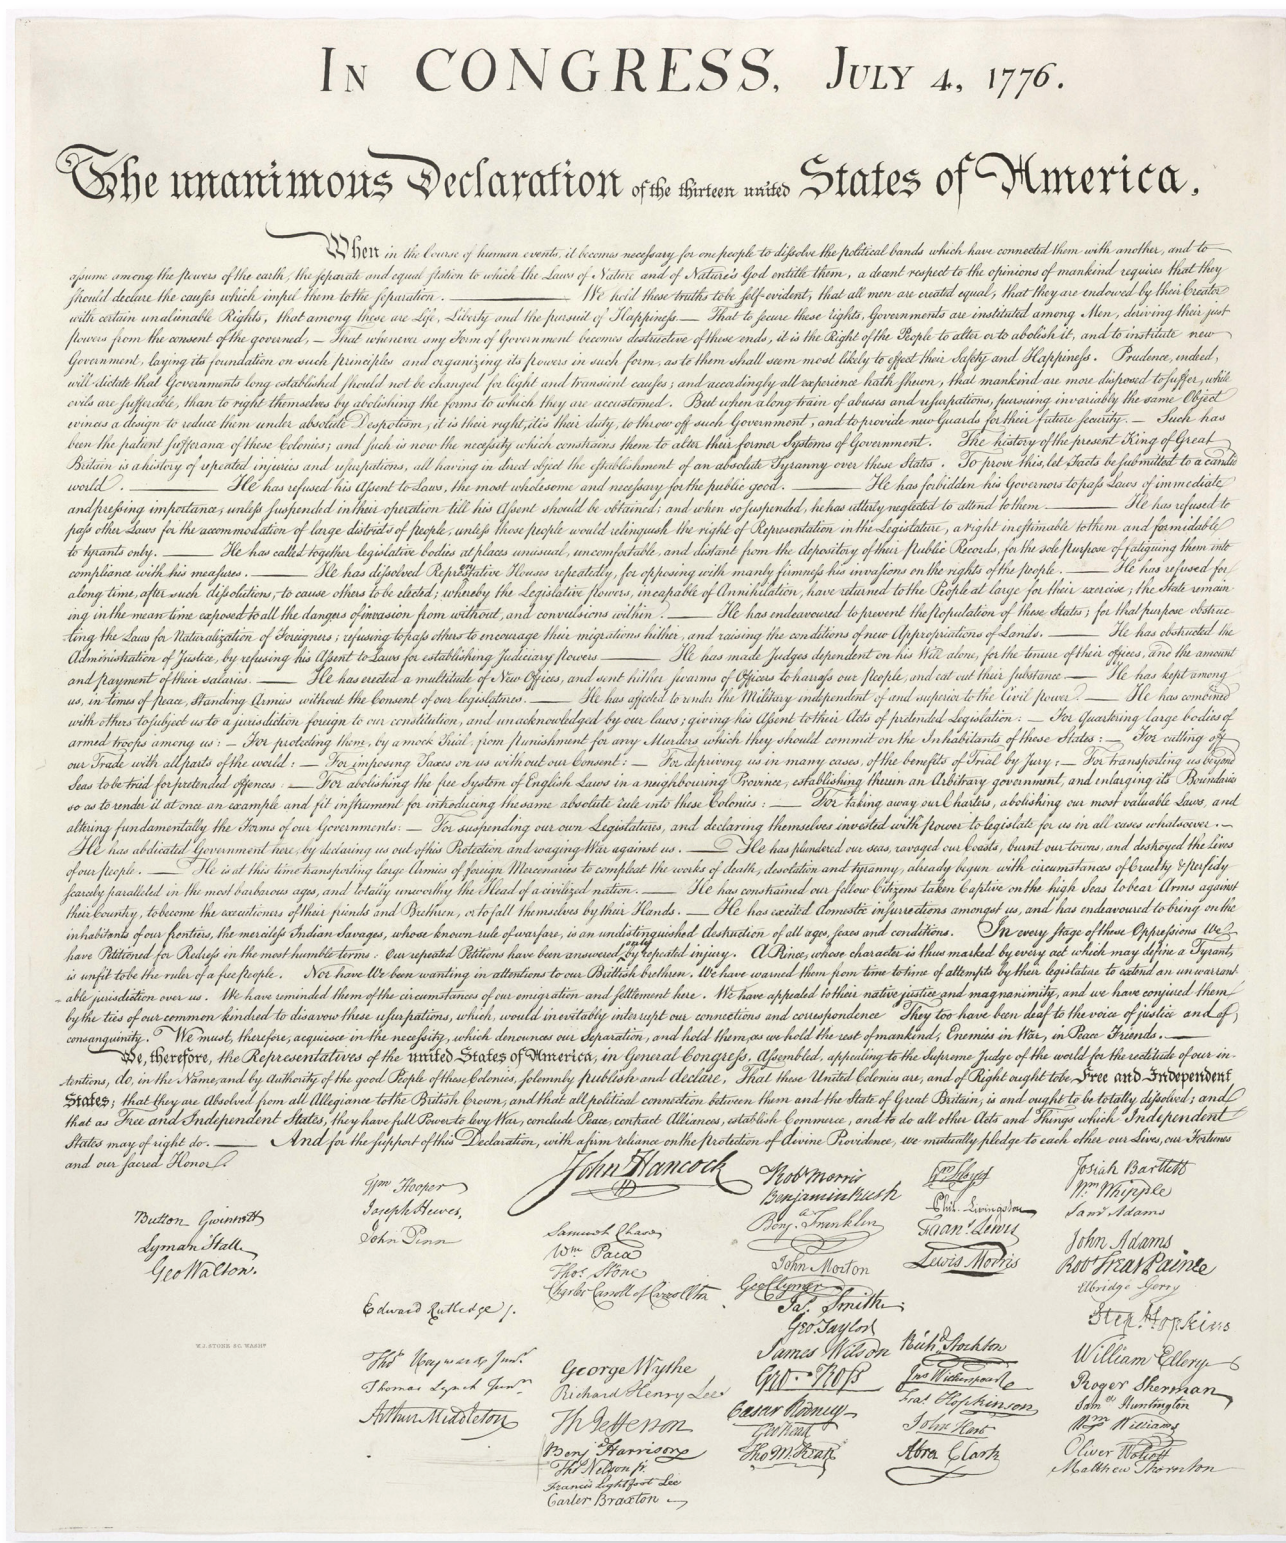 In CONGRESS, July 4, 1776.
The unanimous Declaration of the thirteen united States of America,
When in the Course of human events, it becomes necessary for one people to dissolve the political bands which have connected them with another, and to
assume among the powers of the earth, the separate and equal station to which the Laws of Nature and of Nature's God entitle them, a decent respect to the opinions of mankind requires that they
should declare the causes which impel them to the separation. ——— We hold these truths to be self-evident, that all men are created equal, that they are endowed by their Creator
with certain unalienable Rights, that among these are Life, Liberty and the pursuit of Happiness.— That to secure these rights, Governments are instituted among Men, deriving their just
powers from the consent of the governed, — That whenever any Form of Government becomes destructive of these ends, it is the Right of the People to alter or to abolish it, and to institute new
Government, laying its foundation on such principles and organizing its powers in such form, as to them shall seem most likely to effect their Safety and Happiness. Prudence, indeed,
will dictate that Governments long established should not be changed for light and transient causes; and accordingly all experience hath shewn, that mankind are more disposed to suffer, while
evils are sufferable, than to right themselves by abolishing the forms to which they are accustomed. But when a long train of abuses and usurpations, pursuing invariably the same Object
evinces a design to reduce them under absolute Despotism, it is their right, it is their duty, to throw off such Government, and to provide new Guards for their future security. — Such has
been the patient sufferance of these Colonies; and such is now the necessity which constrains them to alter their former Systems of Government. The history of the present King of Great
Britain is a history of repeated injuries and usurpations, all having in direct object the establishment of an absolute Tyranny over these States. To prove this, let Facts be submitted to a candid
world. ——— He has refused his Assent to Laws, the most wholesome and necessary for the public good. ——— He has forbidden his Governors to pass Laws of immediate
and pressing importance, unless suspended in their operation till his Assent should be obtained; and when so suspended, he has utterly neglected to attend to them. ——— He has refused to
pass other Laws for the accommodation of large districts of people, unless those people would relinquish the right of Representation in the Legislature, a right inestimable to them and formidable
to tyrants only. ——— He has called together legislative bodies at places unusual, uncomfortable, and distant from the depository of their public Records, for the sole purpose of fatiguing them into
compliance with his measures. ——— He has dissolved Representative Houses repeatedly, for opposing with manly firmness his invasions on the rights of the people. ——— He has refused for
a long time, after such dissolutions, to cause others to be elected; whereby the Legislative powers, incapable of Annihilation, have returned to the People at large for their exercise; the State remain-
ing in the mean time exposed to all the dangers of invasion from without, and convulsions within. ——— He has endeavoured to prevent the population of these States; for that purpose obstruc-
ting the Laws for Naturalization of Foreigners; refusing to pass others to encourage their migrations hither, and raising the conditions of new Appropriations of Lands. ——— He has obstructed the
Administration of Justice, by refusing his Assent to Laws for establishing Judiciary powers ——— He has made Judges dependent on his Will alone, for the tenure of their offices, and the amount
and payment of their salaries. ——— He has erected a multitude of New Offices, and sent hither swarms of Officers to harrass our people, and eat out their substance ——— He has kept among
us, in times of peace, Standing Armies without the Consent of our legislatures. ——— He has affected to render the Military independent of and superior to the Civil power. ——— He has combined
with others to subject us to a jurisdiction foreign to our constitution, and unacknowledged by our laws; giving his Assent to their Acts of pretended Legislation: — For Quartering large bodies of
armed troops among us: — For protecting them, by a mock Trial, from punishment for any Murders which they should commit on the Inhabitants of these States: — For cutting off
our Trade with all parts of the world: — For imposing Taxes on us without our Consent: — For depriving us in many cases, of the benefits of Trial by Jury: — For transporting us beyond
Seas to be tried for pretended offences — For abolishing the free System of English Laws in a neighbouring Province, establishing therein an Arbitrary government, and enlarging its Boundaries
so as to render it at once an example and fit instrument for introducing the same absolute rule into these Colonies: — For taking away our Charters, abolishing our most valuable Laws, and
altering fundamentally the Forms of our Governments: — For suspending our own Legislatures, and declaring themselves invested with power to legislate for us in all cases whatsoever. —
He has abdicated Government here, by declaring us out of his Protection and waging War against us. — He has plundered our seas, ravaged our Coasts, burnt our towns, and destroyed the lives
of our people. — He is at this time transporting large Armies of foreign Mercenaries to compleat the works of death, desolation and tyranny, already begun with circumstances of Cruelty & perfidy
scarcely paralleled in the most barbarous ages, and totally unworthy the Head of a civilized nation. — He has constrained our fellow Citizens taken Captive on the high Seas to bear Arms against
their Country, to become the executioners of their friends and Brethren, or to fall themselves by their Hands. — He has excited domestic insurrections amongst us, and has endeavoured to bring on the
inhabitants of our frontiers, the merciless Indian Savages, whose known rule of warfare, is an undistinguished destruction of all ages, sexes and conditions. In every stage of these Oppressions We
have Petitioned for Redress in the most humble terms: Our repeated Petitions have been answered only by repeated injury. A Prince, whose character is thus marked by every act which may define a Tyrant,
is unfit to be the ruler of a free people. Nor have We been wanting in attentions to our Brittish brethren. We have warned them from time to time of attempts by their legislature to extend an unwarrant-
able jurisdiction over us. We have reminded them of the circumstances of our emigration and settlement here. We have appealed to their native justice and magnanimity, and we have conjured them
by the ties of our common kindred to disavow these usurpations, which, would inevitably interrupt our connections and correspondence They too have been deaf to the voice of justice and of
consanguinity. We must, therefore, acquiesce in the necessity, which denounces our Separation, and hold them, as we hold the rest of mankind, Enemies in War, in Peace Friends. ———
We, therefore, the Representatives of the united States of America, in General Congress, Assembled, appealing to the Supreme Judge of the world for the rectitude of our in-
tentions, do, in the Name, and by Authority of the good People of these Colonies, solemnly publish and declare, That these United Colonies are, and of Right ought to be Free and Independent
States; that they are Absolved from all Allegiance to the British Crown, and that all political connection between them and the State of Great Britain, is and ought to be totally dissolved; and
that as Free and Independent States, they have full Power to levy War, conclude Peace, contract Alliances, establish Commerce, and to do all other Acts and Things which Independent
States may of right do. ——— And for the support of this Declaration, with a firm reliance on the protection of divine Providence, we mutually pledge to each other our Lives, our Fortunes
and our sacred Honor.
Button Gwinnett
Lyman Hall
Geo Walton.
Wm Hooper
Joseph Hewes,
John Penn
Edward Rutledge /.
Thos Heyward Junr.
Thomas Lynch Junr.
Arthur Middleton
John Hancock
Samuel Chase
Wm Paca
Thos Stone
Charles Carroll of Carrollton
George Wythe
Richard Henry Lee
Th Jefferson
Benj Harrison
Thos Nelson jr.
Francis Lightfoot Lee
Carter Braxton
Robt Morris
Benjamin Rush
Benja Franklin
John Morton
Geo Clymer
Jas. Smith
Geo. Taylor
James Wilson
Geo. Ross
Caesar Rodney
Geo Read
Tho M:Kean
Wm Floyd
Phil. Livingston
Frans. Lewis
Lewis Morris
Richd Stockton
Jno Witherspoon
Fras. Hopkinson
John Hart
Abra Clark
Josiah Bartlett
Wm Whipple
Saml Adams
John Adams
Robt Treat Paine
Elbridge Gerry
Step. Hopkins
William Ellery
Roger Sherman
Saml Huntington
Wm Williams
Oliver Wolcott
Matthew Thornton
W.J. STONE SC. WASHN